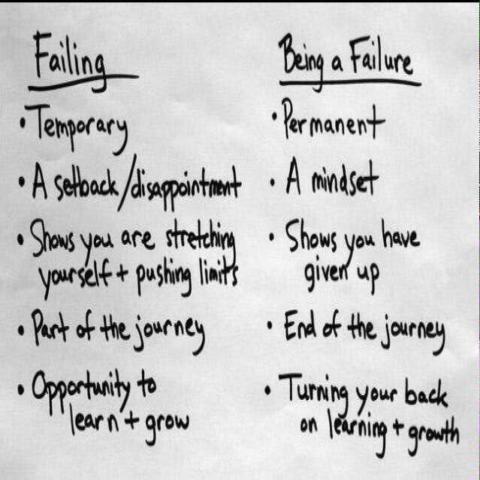 Failing
• Temporary
• A setback/disappointment
• Shows you are stretching
yourself + pushing limits
• Part of the journey
• Opportunity to
learn + grow
Being a Failure
• Permanent
• A mindset
• Shows you have
given up
• End of the journey
• Turning your back
on learning + growth